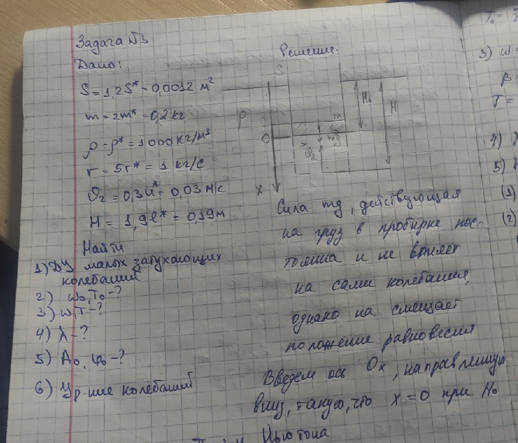 Задача №3
Дано:
Решение
S = 1,2S* = 0,0012 м²
m = 2m* = 0,2 кг
ρ = ρ* = 1000 кг/м³
r = 5r* = 1 кг/с
ϑ₂ = 0,3u* = 0,03 м/с
H = 1,9l* = 0,19 м
Найти
1) ДУ малых затухающих
колебаний
2) ω₀, T₀ - ?
3) ω, T - ?
4) λ - ?
5) A₀, φ₀ - ?
6) Ур-ние колебаний
S
ρ
O
X
m
H₀
H
ϑ₂
Сила mg, действующая
на груз в пробирке пос-
тоянна и не влияет
на сами колебания,
однако на смещает
положение равновесия
Введем ось Ox, направленную
вниз, такую, что x = 0 при H₀
Ньютона
3) ω
β
T =
4)
5)
(1)
(2)